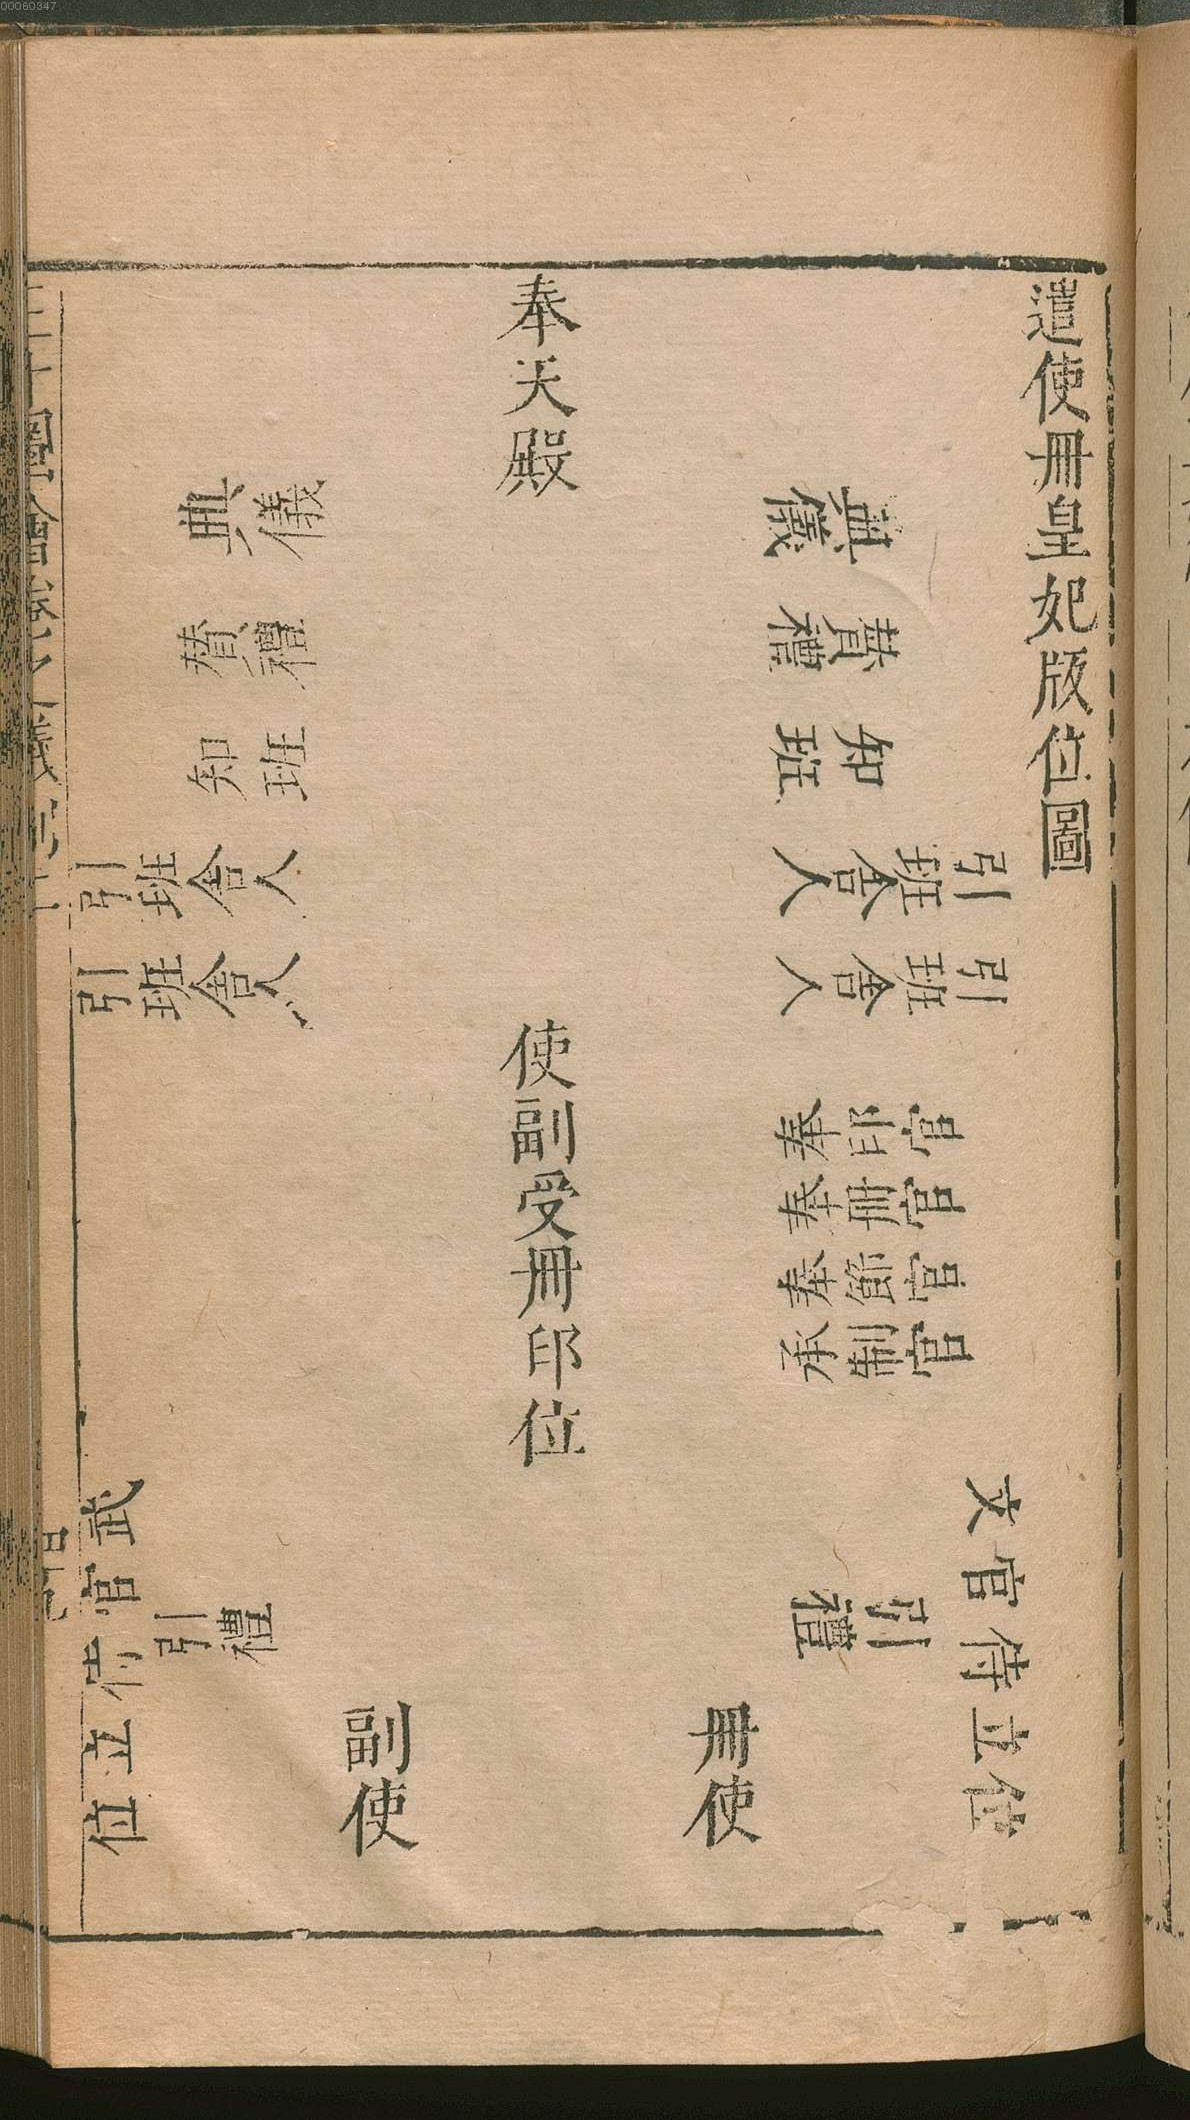 00060347
遣使冊皇妃版位圖
典儀
贊禮
知班
引班舍人
引班舍人
奉節官
奉冊官
奉印官
承制官
文官侍立位
引禮
冊使
奉天殿
使副受冊印位
副使
典儀
贊禮
知班
引班舍人
引班舍人
武官侍立位
引禮